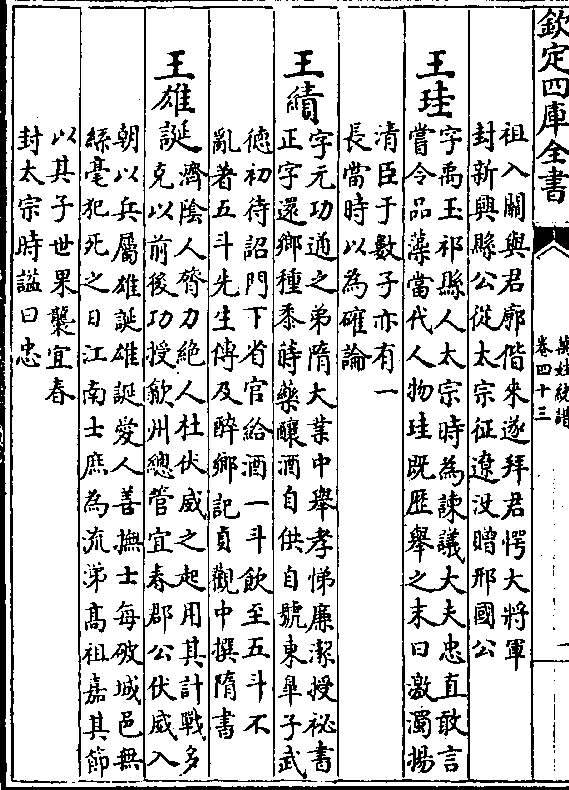 欽定四庫全書
萬姓統譜
卷四十三
一
祖入關與君廓偕來遂拜君愕大將軍
封新興縣公從太宗征遼没贈邢國公
王珪
字禹玉祁縣人太宗時為諫議大夫忠直敢言
嘗令品藻當代人物珪既歴舉之末曰激濁揚
清臣于數子亦有一
長當時以為確論
王績
字元功通之弟隋大業中舉孝悌廉潔授祕書
正字還鄉種黍蒔藥釀酒自供自號東臯子武
徳初待詔門下省官給酒一斗飲至五斗不
亂著五斗先生傳及醉鄉記貞觀中撰隋書
王雄誕
濟陰人膂力絶人杜伏威之起用其計戰多
克以前後功授歙州總管宜春郡公伏威入
朝以兵屬雄誕雄誕愛人善撫士每破城邑無
絲毫犯死之日江南士庶為流涕髙祖嘉其節
以其子世果襲宜春
封太宗時謚曰忠